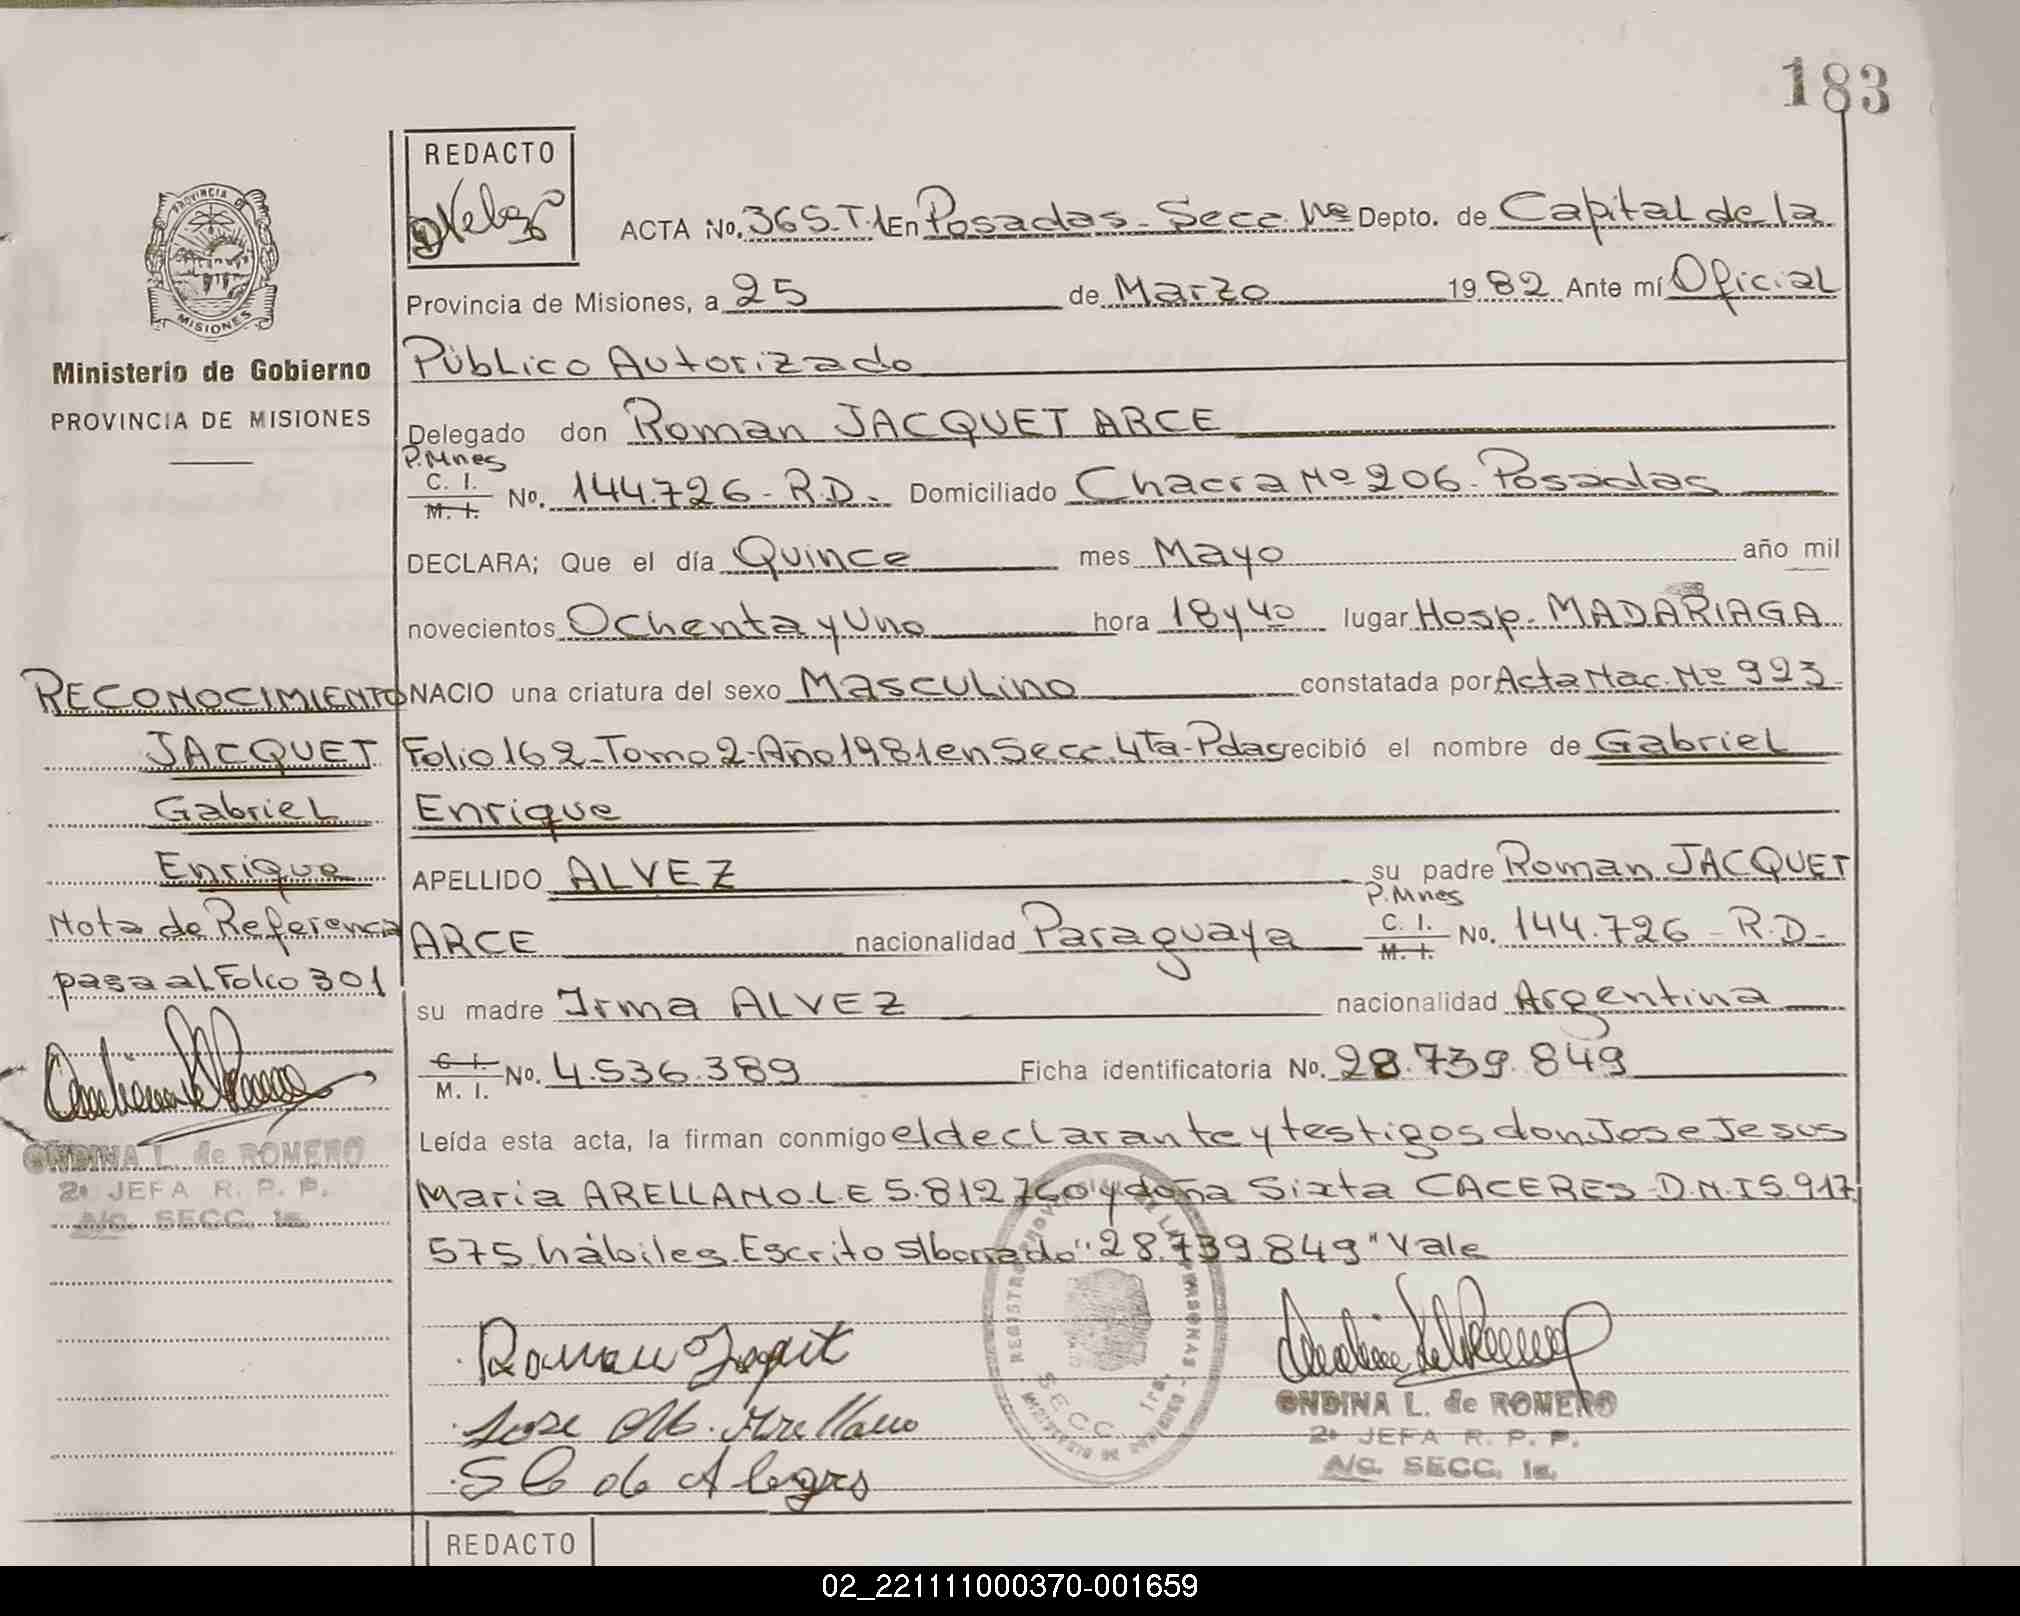 183
REDACTO
PROVINCIA DE
MISIONES
Ministerio de Gobierno
PROVINCIA DE MISIONES
ACTA No. 365-T.1 En Posadas - Secc. Nº Depto. de Capital de la
Provincia de Misiones, a 25 de Marzo 1982 Ante mí Oficial
Público Autorizado
Delegado don Roman JACQUET ARCE
P.Mnes
C. I.
M. I. No. 144.726 - R.D. Domiciliado Chacra Nº 206 - Posadas
DECLARA; Que el día Quince mes Mayo año mil
novecientos Ochenta y Uno hora 18 y 40 lugar Hosp. MADARIAGA
NACIO una criatura del sexo Masculino constatada por Acta Nac. Nº 923
Folio 162 - Tomo 2 - Año 1981 en Secc. 4ta - Pdas recibió el nombre de Gabriel
Enrique
APELLIDO ALVEZ su padre Roman JACQUET
P.Mnes
ARCE nacionalidad Paraguaya C. I. M. I. No. 144.726 - R.D.
su madre Irma ALVEZ nacionalidad Argentina
C. I.
M. I. No. 4.536.389 Ficha identificatoria No. 28.739.849
Leída esta acta, la firman conmigo el declarante y testigos don Jose Jesus
Maria ARELLANO. L.E 5.812.760 y doña Sixta CACERES - D.N.I 5.917
575 hábiles. Escrito s/borrado "28.739.849" Vale
RECONOCIMIENTO
JACQUET
Gabriel
Enrique
Nota de Referencia
pasa al Folio 301
ONDINA L. de ROMERO
2ª JEFA R. P. P.
A/c. SECC. 1a.
Roman Jaquet
Jose M. Arellano
S C de Alegre
SECC. 1ra.
ONDINA L. de ROMERO
2ª JEFA R. P. P.
A/c. SECC. 1a.
REDACTO
02_221111000370-001659